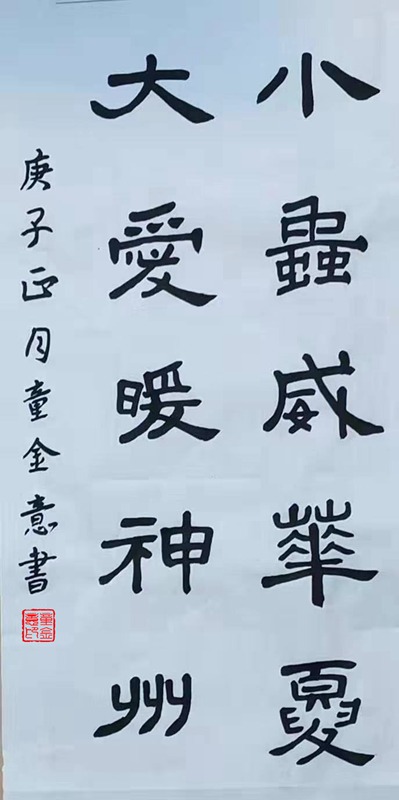 小蟲威華夏
大愛暖神州
庚子正月童金意書
童金意印